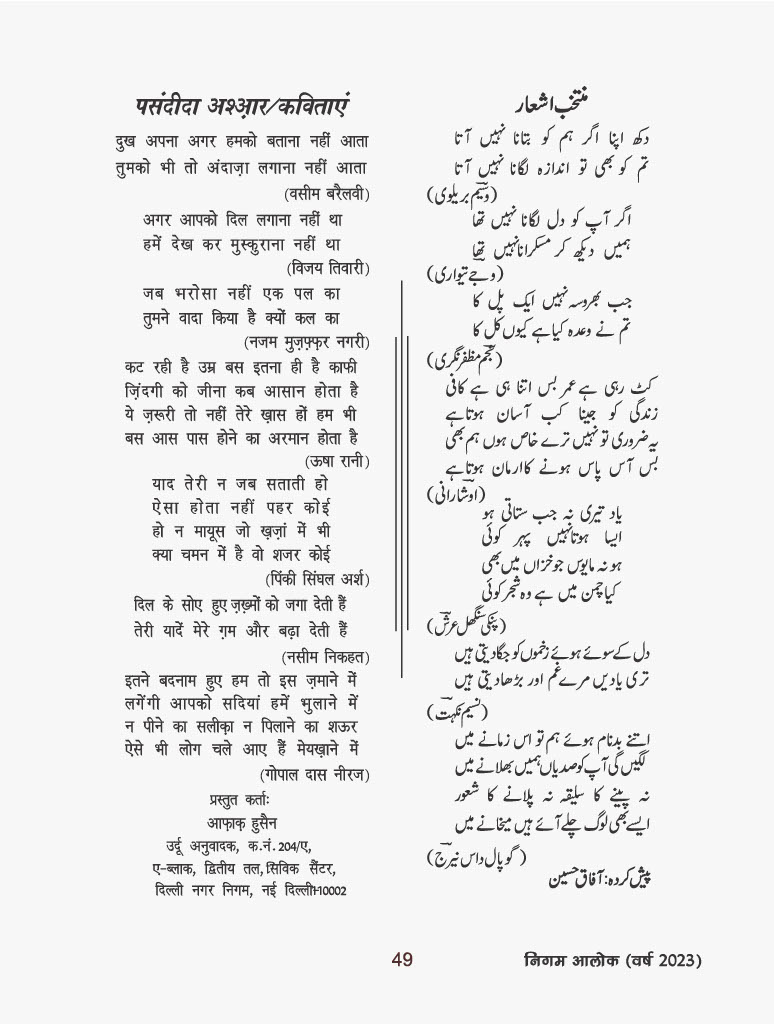 पसंदीदा अश्आ़र/कविताएं
दुख अपना अगर हमको बताना नहीं आता
तुमको भी तो अंदाज़ा लगाना नहीं आता
(वसीम बरैलवी)
अगर आपको दिल लगाना नहीं था
हमें देख कर मुस्कुराना नहीं था
(विजय तिवारी)
जब भरोसा नहीं एक पल का
तुमने वादा किया है क्यों कल का
(नजम मुज़फ़्फ़र नगरी)
कट रही है उम्र बस इतना ही है काफी
ज़िंदगी को जीना कब आसान होता है
ये ज़रूरी तो नहीं तेरे ख़ास हों हम भी
बस आस पास होने का अरमान होता है
(ऊषा रानी)
याद तेरी न जब सताती हो
ऐसा होता नहीं पहर कोई
हो न मायूस जो ख़ज़ां में भी
क्या चमन में है वो शजर कोई
(पिंकी सिंघल अर्श)
दिल के सोए हुए ज़ख़्मों को जगा देती हैं
तेरी यादें मेरे ग़म और बढ़ा देती हैं
(नसीम निकहत)
इतने बदनाम हुए हम तो इस ज़माने में
लगेंगी आपको सदियां हमें भुलाने में
न पीने का सलीक़ा न पिलाने का शऊर
ऐसे भी लोग चले आए हैं मेयख़ाने में
(गोपाल दास नीरज)
प्रस्तुत कर्ताः
आफ़ाक़ हुसैन
उर्दू अनुवादक, क.नं. 204/ए,
ए-ब्लाक, द्वितीय तल, सिविक सैंटर,
दिल्ली नगर निगम, नई दिल्ली-110002
منتخب اشعار
دکھ اپنا اگر ہم کو بتانا نہیں آتا
تم کو بھی تو اندازہ لگانا نہیں آتا
(وسیم بریلوی)
اگر آپ کو دل لگانا نہیں تھا
ہمیں دیکھ کر مسکرانا نہیں تھا
(وجے تیواری)
جب بھروسہ نہیں ایک پل کا
تم نے وعدہ کیا ہے کیوں کل کا
(نجم مظفر نگری)
کٹ رہی ہے عمر بس اتنا ہی ہے کافی
زندگی کو جینا کب آسان ہوتا ہے
یہ ضروری تو نہیں ترے خاص ہوں ہم بھی
بس آس پاس ہونے کا ارمان ہوتا ہے
(اوشا رانی)
یاد تیری نہ جب ستاتی ہو
ایسا ہوتا نہیں پہر کوئی
ہو نہ مایوس جو خزاں میں بھی
کیا چمن میں ہے وہ شجر کوئی
(پنکی سنگھل عرش)
دل کے سوئے ہوئے زخموں کو جگا دیتی ہیں
تری یادیں مرے غم اور بڑھا دیتی ہیں
(نسیم نکہت)
اتنے بدنام ہوئے ہم تو اس زمانے میں
لگیں گی آپ کو صدیاں ہمیں بھلانے میں
نہ پینے کا سلیقہ نہ پلانے کا شعور
ایسے بھی لوگ چلے آئے ہیں میخانے میں
(گوپال داس نیرج)
پیش کردہ: آفاق حسین
49
निगम आलोक (वर्ष 2023)